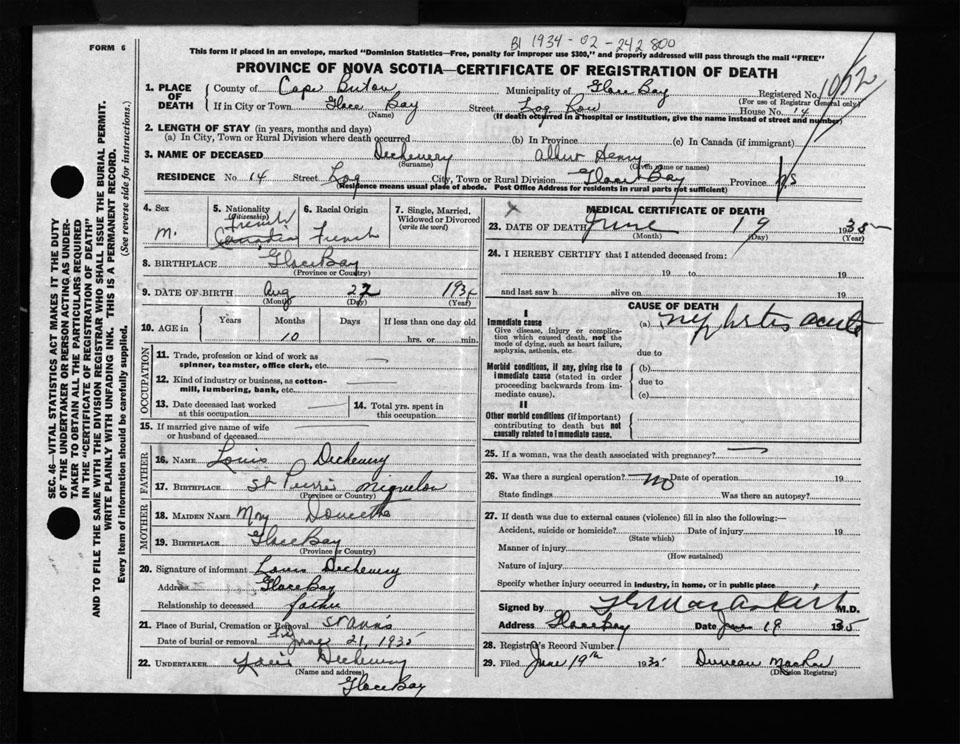 FORM 6
B1 1934-02-242800
This form if placed in an envelope, marked "Dominion Statistics—Free, penalty for improper use $300," and properly addressed will pass through the mail "FREE"
PROVINCE OF NOVA SCOTIA—CERTIFICATE OF REGISTRATION OF DEATH
SEC. 46—VITAL STATISTICS ACT MAKES IT THE DUTY
OF THE UNDERTAKER OR PERSON ACTING AS UNDER-
TAKER TO OBTAIN ALL THE PARTICULARS REQUIRED
IN THE "CERTIFICATE OF REGISTRATION OF DEATH"
AND TO FILE THE SAME WITH THE DIVISION REGISTRAR WHO SHALL ISSUE THE BURIAL PERMIT.
WRITE PLAINLY WITH UNFADING INK. THIS IS A PERMANENT RECORD.
Every item of information should be carefully supplied. (See reverse side for instructions.)
1. PLACE OF DEATH
County of Cape Breton Municipality of Glace Bay Registered No.
(For use of Registrar General only)
If in City or Town Glace Bay Street Log Row House No. 14
(Name) (If death occurred in a hospital or institution, give the name instead of street and number)
2. LENGTH OF STAY (in years, months and days)
(a) In City, Town or Rural Division where death occurred (b) In Province (c) In Canada (if immigrant)
3. NAME OF DECEASED Dechenery Albert Henry
(Surname) (Given name or names)
RESIDENCE No. 14 Street Log City, Town or Rural Division Glace Bay Province NS
(Residence means usual place of abode. Post Office Address for residents in rural parts not sufficient)
4. Sex M.
5. Nationality (Citizenship) French Canadian
6. Racial Origin French
7. Single, Married, Widowed or Divorced (write the word)
8. BIRTHPLACE Glace Bay
(Province or Country)
9. DATE OF BIRTH Aug 22 1934
(Month) (Day) (Year)
10. AGE in Years Months Days If less than one day old
10 hrs. or min.
OCCUPATION
11. Trade, profession or kind of work as spinner, teamster, office clerk, etc. —
12. Kind of industry or business, as cotton-mill, lumbering, bank, etc. —
13. Date deceased last worked at this occupation —
14. Total yrs. spent in this occupation
15. If married give name of wife or husband of deceased —
FATHER
16. NAME Louis Dechenery
17. BIRTHPLACE St Pierre Miquelon
(Province or Country)
MOTHER
18. MAIDEN NAME Mary Doucette
19. BIRTHPLACE Glace Bay
(Province or Country)
20. Signature of informant Louis Dechenery
Address Glace Bay
Relationship to deceased father
21. Place of Burial, Cremation or Removal St Ann's
Date of burial or removal June 21, 1935
22. UNDERTAKER Louis Dechenery
(Name and address)
Glace Bay
MEDICAL CERTIFICATE OF DEATH
23. DATE OF DEATH June 19 1935
(Month) (Day) (Year)
24. I HEREBY CERTIFY that I attended deceased from:
19 to 19
and last saw h alive on 19
CAUSE OF DEATH
I
Immediate cause (a) nephritis acute
Give disease, injury or complication which caused death, not the mode of dying, such as heart failure, asphyxia, asthenia, etc.
due to
Morbid conditions, if any, giving rise to immediate cause (stated in order proceeding backwards from immediate cause).
(b)
due to
(c)
II
Other morbid conditions (if important) contributing to death but not causally related to immediate cause.
25. If a woman, was the death associated with pregnancy? —
26. Was there a surgical operation? No Date of operation 19
State findings Was there an autopsy?
27. If death was due to external causes (violence) fill in also the following:—
Accident, suicide or homicide? Date of injury 19
(State which)
Manner of injury
(How sustained)
Nature of injury
Specify whether injury occurred in industry, in home, or in public place
Signed by M.D.
Address Glace Bay Date June 19 1935
28. Registrar's Record Number
29. Filed June 19th 1935 Duncan
(Division Registrar)